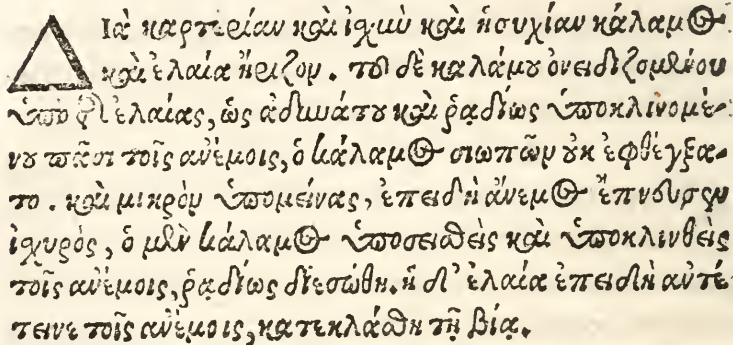 Διὰ καρτερίαν καὶ ἰχὺν καὶ ἡσυχίαν κάλαμος
καὶ ἐλαία ἤριζον. τοῦ δὲ καλάμου ὀνειδιζομένου
ὑπὸ τῆς ἐλαίας, ὡς ἀδυνάτου καὶ ῥᾳδίως ὑποκλινομέ-
νου πᾶσι τοῖς ἀνέμοις, ὁ κάλαμος σιωπῶν οὐκ ἐφθέγξα-
το. καὶ μικρὸν ὑπομείνας, ἐπειδὴ ἄνεμος ἔπνευσεν
ἰχυρός, ὁ μὲν κάλαμος ὑποσεισθεὶς καὶ ὑποκλινθεὶς
τοῖς ἀνέμοις, ῥᾳδίως διεσώθη. ἡ δ' ἐλαία ἐπειδὴ ἀντέ-
τεινε τοῖς ἀνέμοις, κατεκλάσθη τῇ βίᾳ.